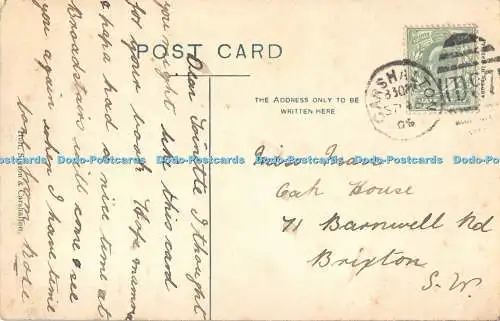 POST CARD
THE ADDRESS ONLY TO BE
WRITTEN HERE.
Dear Toinette I thought
you might like this card
for your book. Hope mamma
& papa had a nice time at
Broadstairs will come & see
you again when I have time
love from Rose
Miss
Oak House
71 Barnwell Rd
Brixton
S.W.
CARSHALTON
830PM
06
D07
& Carshalton.
Dodo-Postcards Dodo-Postcards Dodo-Postcards Dodo-Postcards Dodo-Postcards Dodo-Postcards Dodo-Postcards